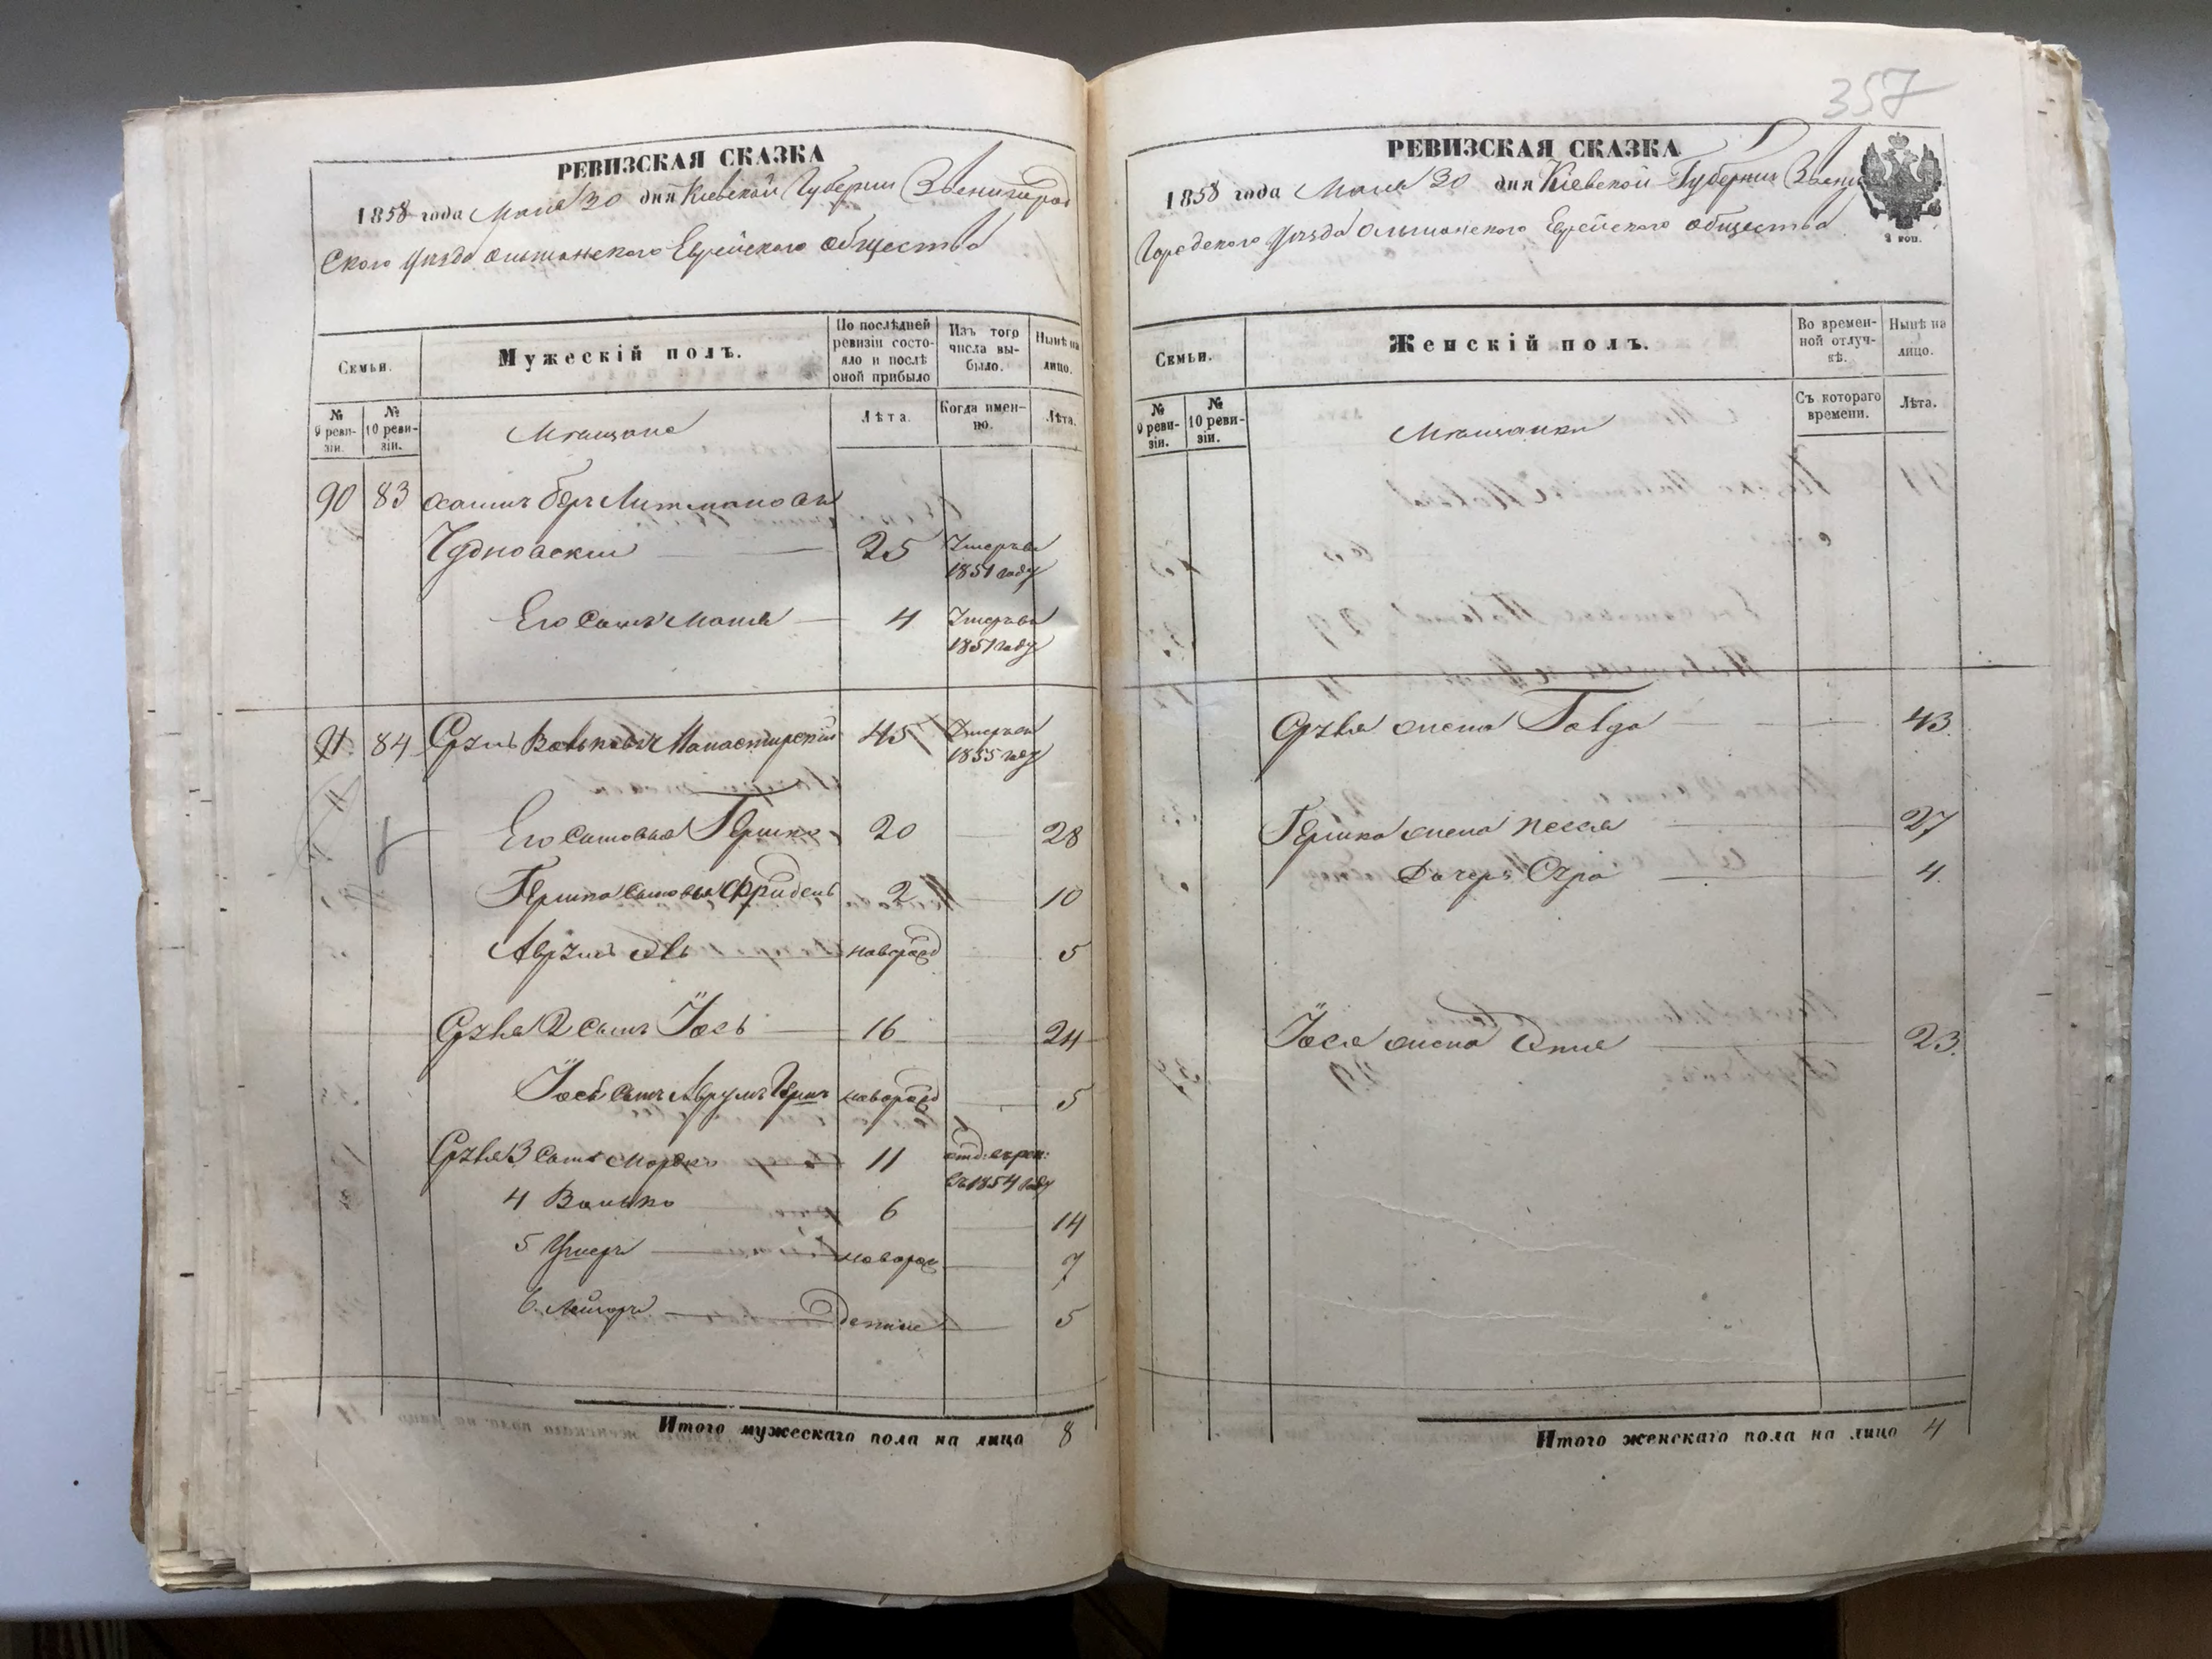 РЕВИЗСКАЯ СКАЗКА
1858 года Мая 30 дня Кіевской Губерніи Звенигород
ского уѣзда Ольшанского Еврейского общества
Семьи.
Мужескій полъ.
По послѣдней ревизіи состояло и послѣ оной прибыло
Изъ того числа выбыло.
Нынѣ на лицо.
№ 9 ревизіи.
№ 10 ревизіи.
Мѣщане
Лѣта.
Когда именно.
Лѣта.
90 83 Хаимъ Беръ Литмановъ
Чудновскій 25 Умеръ въ 1851 году
Его сынъ 4 Умеръ въ 1851 году
91. 84 Срзль Волькович Манастирскій 45 Умеръ въ 1855 году
Его сыновья Гершко 20 28
Гершка сыновья Фридель 2 10
Аврумъ новорожд 5
Срзля 2 сынъ Іось 16 24
Іося сынъ Аврумъ Гершъ новорожд 5
Срзля 3 сынъ Мордко 11 1854 году
4 Волько 6 14
5 Ушеръ новорож 7
6. Лейзоръ 5
Итого мужескаго пола на лицо 8
357
РЕВИЗСКАЯ СКАЗКА
1858 года Мая 30 дня Кіевской Губерніи Звени
городского уѣзда Ольшанского Еврейского общества
Семьи.
Женскій полъ.
Во временной отлучкѣ.
Нынѣ на лицо.
№ 9 ревизіи.
№ 10 ревизіи.
Мѣщанки
Съ котораго времени.
Лѣта.
Срзля жена Голда 43.
Гершка жена Песся 27
дочерь Сура 4.
Іося жена 23.
Итого женскаго пола на лицо 4